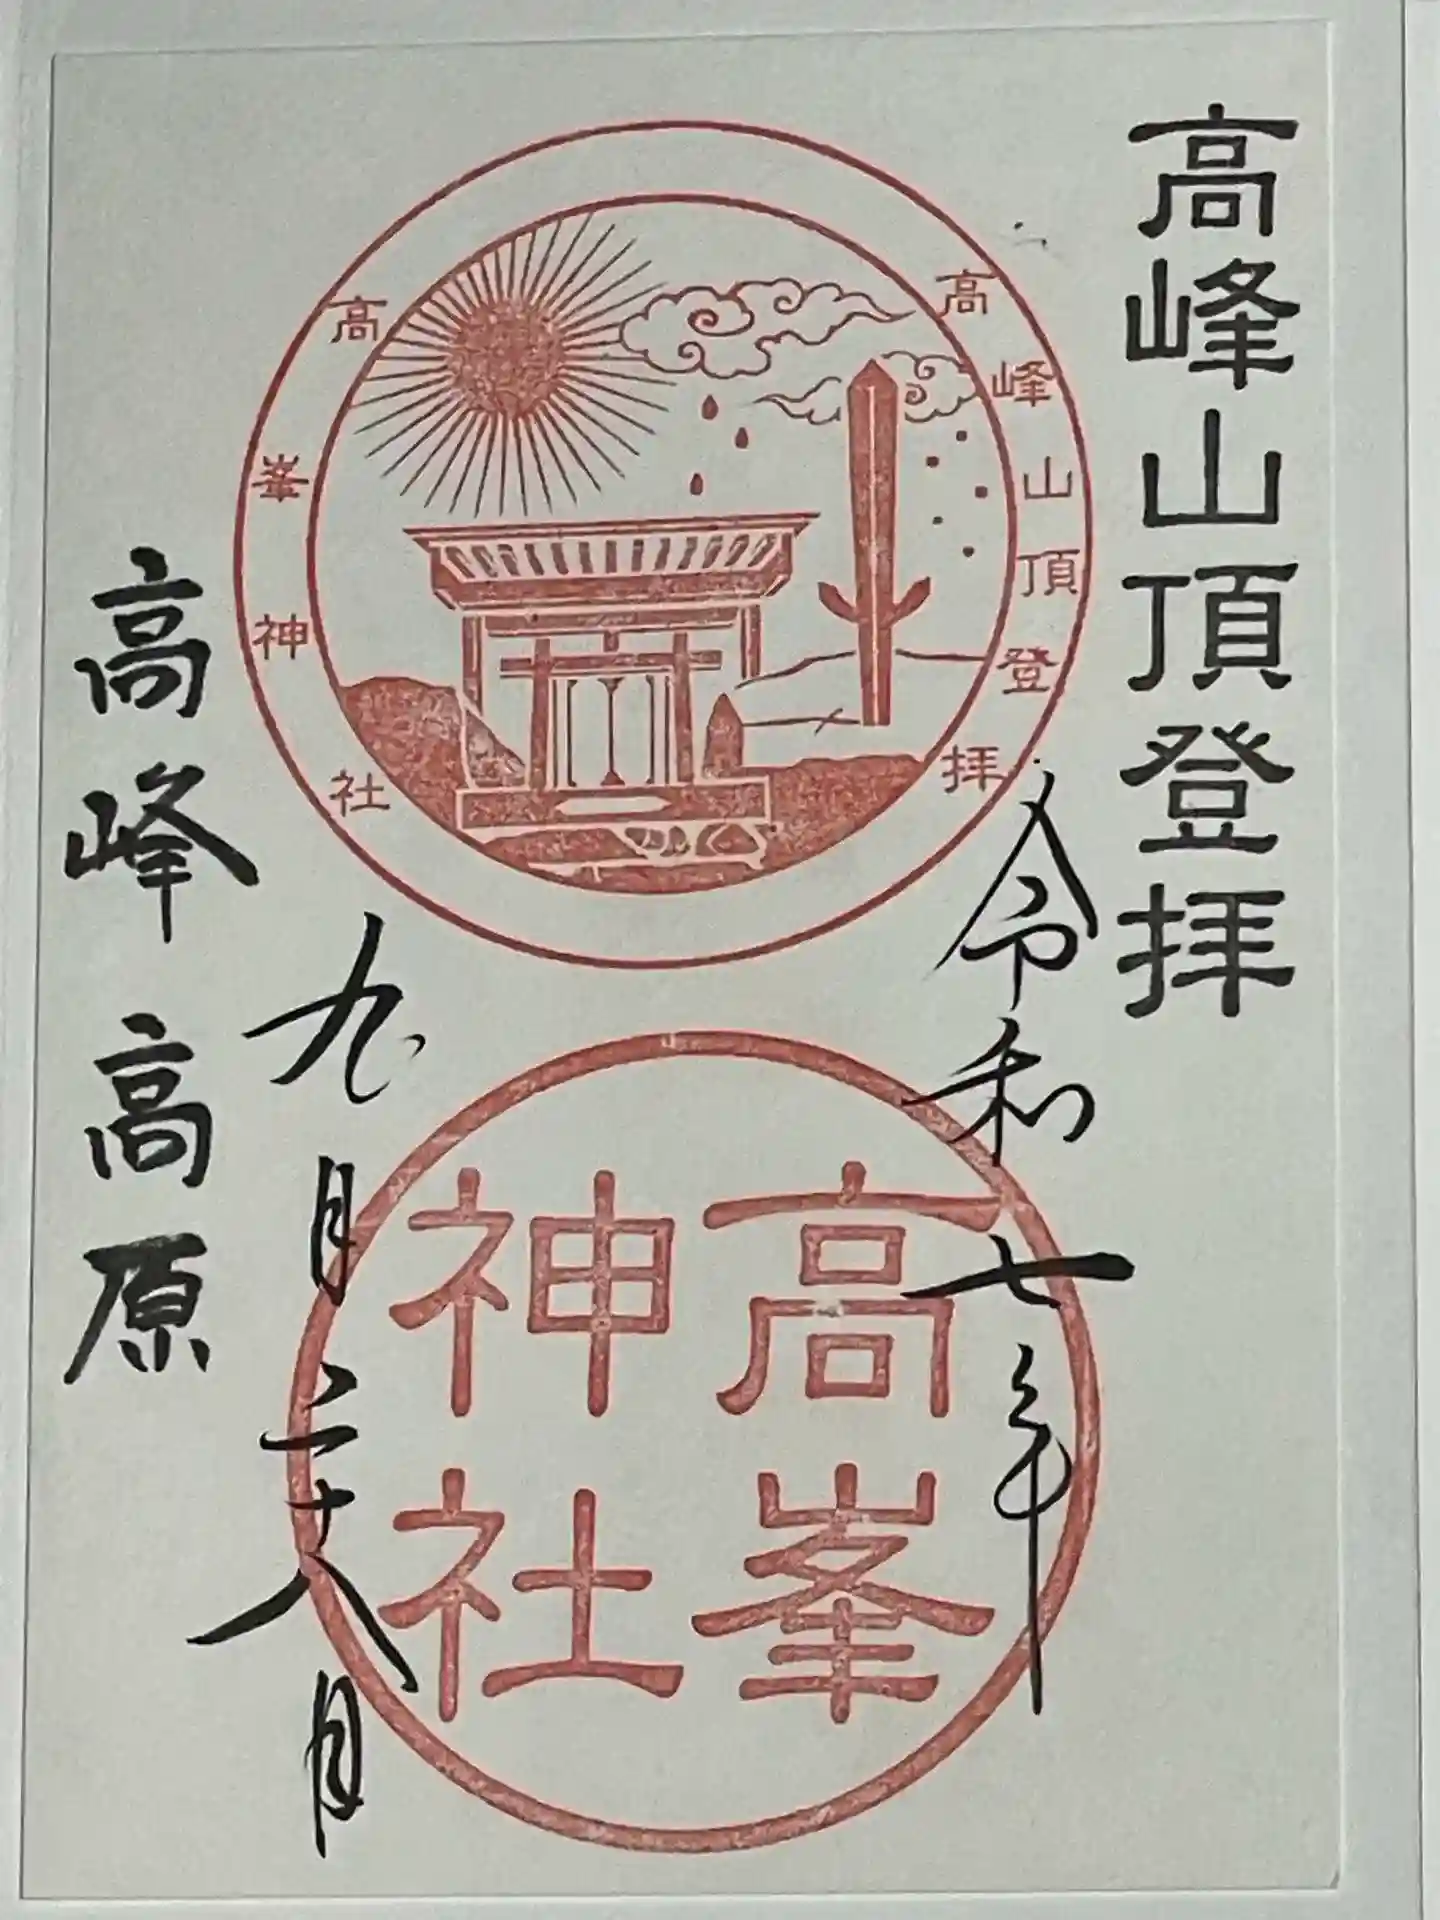 高峰山頂登拝
高峰山頂登拝
高峯神社
令和七年
高峯
神社
九月二十八日
高峰高原